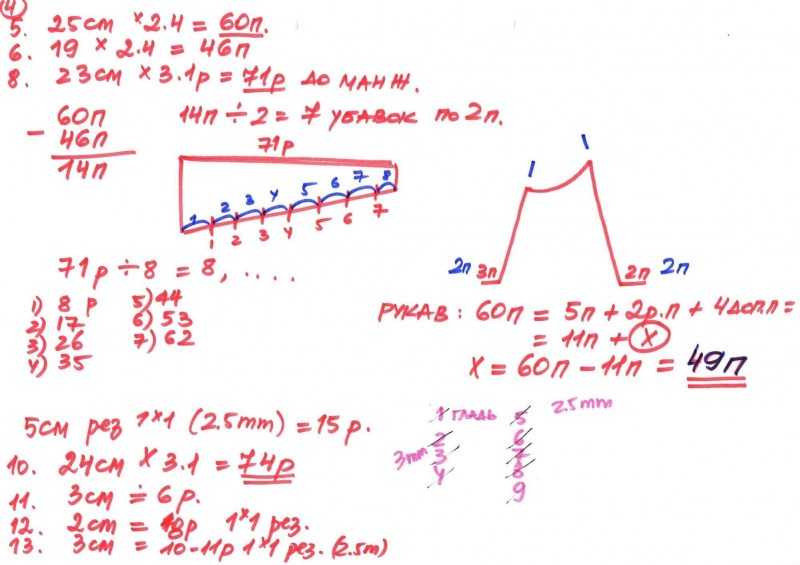 4
5. 25см × 2.4 = 60п.
6. 19 × 2.4 = 46п
8. 23см × 3.1р = 71р до манж.
60п
- 46п
14п
14п ÷ 2 = 7 убавок по 2п.
71р
1 2 3 4 5 6 7 8
1 2 3 4 5 6 7
71р ÷ 8 = 8, ....
1) 8 р
2) 17
3) 26
4) 35
5) 44
6) 53
7) 62
1 1
2п 3п 2п 2п
РУКАВ: 60п = 5п + 2р.п + 4доп.п =
= 11п + X
X = 60п - 11п = 49п
5см рез 1×1 (2.5mm) = 15р.
10. 24см × 3.1 = 74р
11. 3см ÷ 6р.
12. 2см = 8р 1×1 рез.
13. 3см = 10-11р 1×1 рез. (2.5m)
1 гладь
2
3mm 3
4
5 2.5mm
6
7
8
9